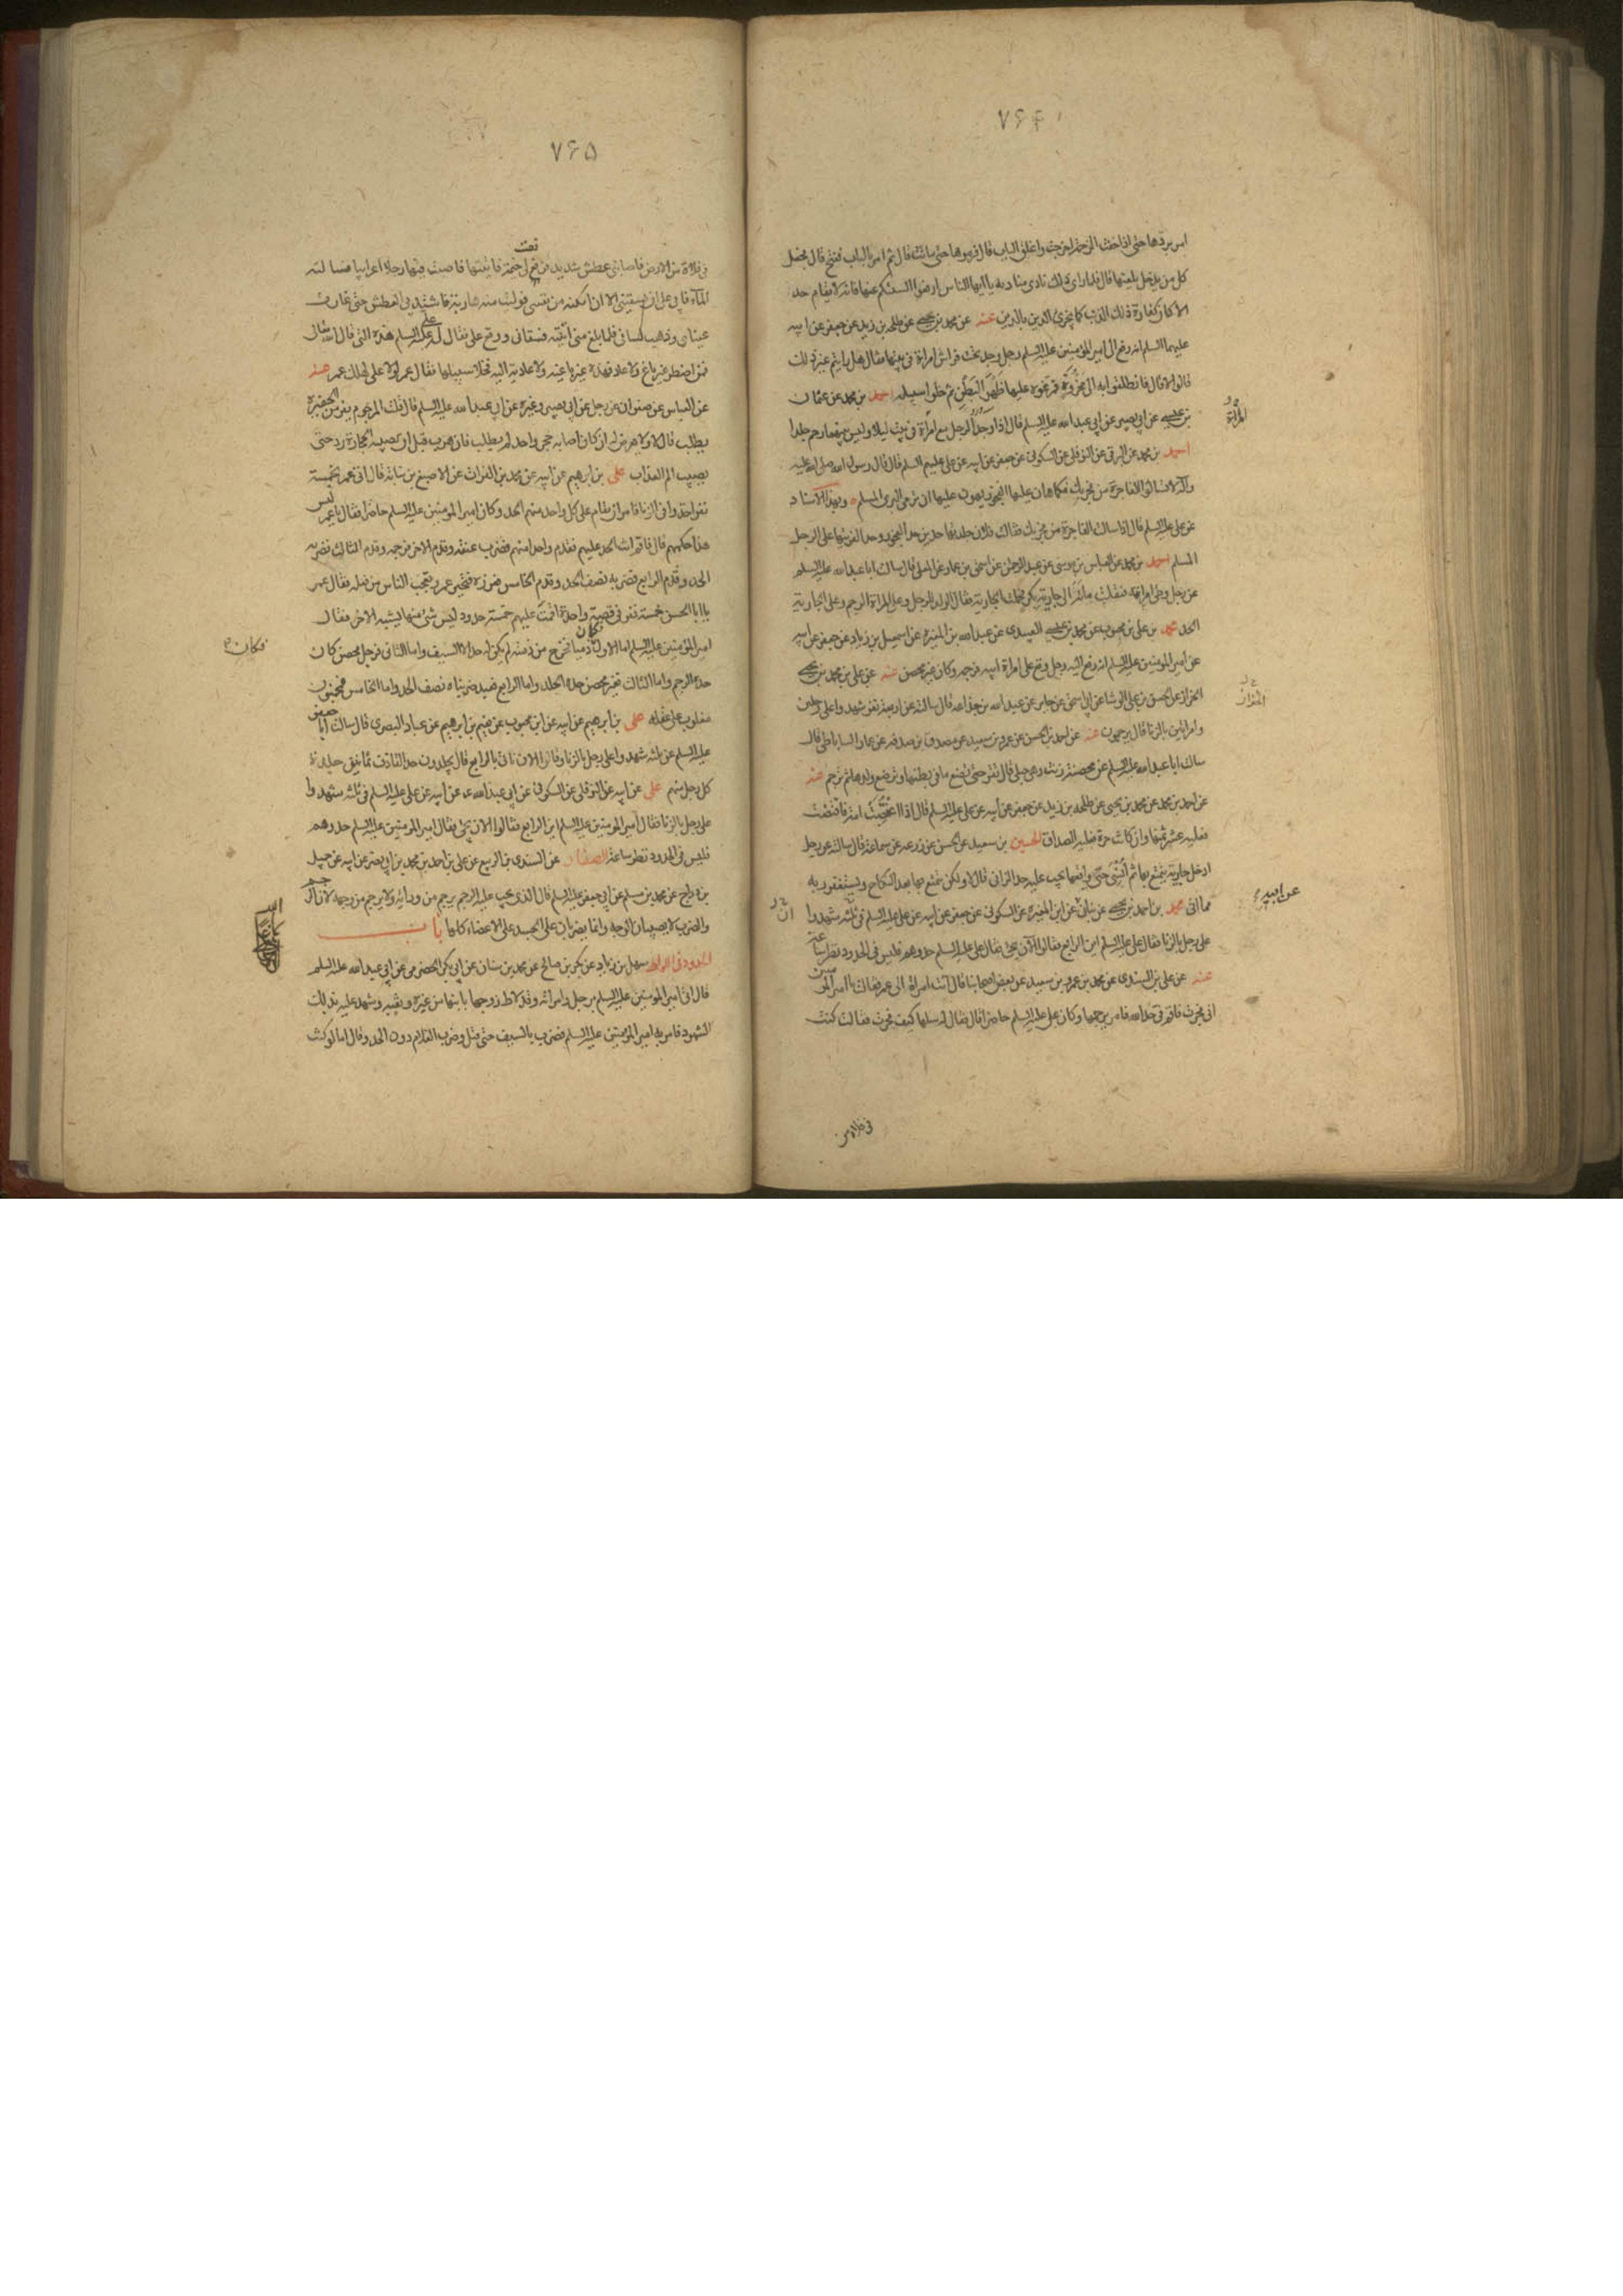 ۷۶۴
امر بردها حتى اذا خفت الزحمة اخرجت واغلق الباب قال فرموها حتى ماتت قال ثم امر بالباب ففتح قال فجعل
كل من يدخل يلعنها قال فلما راى ذلك نادى مناديه يا ايها الناس ارفعوا السنتكم عنها فانه لا يقام حد
الا كان كفارة ذلك الذنب كما يجزى الدين بالدين عنه عن محمد بن يحيى عن طلحة بن زيد عن جعفر عن ابيه
عليهما السلم انه رفع الى امير المؤمنين عليه السلم رجل وجد تحت فراش امراة فى بيتها فقال هل رايتم غير ذلك
قالوا لا قال فانطلقوا به الى مخروة فمرغوه عليها ظهرا لبطن ثم خلوا سبيله احمد بن محمد عن عثمان
بن عيسى عن ابى بصير عن ابى عبد الله عليه السلم قال اذا وجد الرجل مع امراة فى بيت ليلا وليس بينهما رحم جلدا
المرأة
احمد بن محمد عن البرقى عن النوفلى عن السكونى عن جعفر عن ابيه عن على عليهم السلم قال قال رسول الله صلى الله عليه
وآله لا تسالوا الفاجرة من فجر بك فكما هان عليها الفجور يهون عليها ان ترمى البرى المسلم وبهذا الاسناد
عن على عليه السلم قال اذا سالت الفاجرة من فجر بك فقالت فلان جلدتها حدين حدا لفجورها وحدا لفريتها على الرجل
المسلم احمد بن محمد عن العباس بن موسى عن يونس بن عبد الرحمن عن اسحق بن عمار عن المعلى قال سالت ابا عبد الله عليه السلم
عن رجل وطى امراته فنقلت ماءه الى جارية بكر فحبلت الجارية فقال الولد للرجل وعلى المراة الرجم وعلى الجارية
الحد محمد بن على بن محبوب عن محمد بن عيسى العبيدى عن عبد الله بن المغيرة عن اسمعيل بن زياد عن جعفر عن ابيه
عن امير المؤمنين عليه السلم انه رفع اليه رجل وقع على امراة ابيه فرجمه وكان غير محصن عنه عن على بن محمد بن يحيى
الخزاز عن الحسن بن على الوشا عن ابى اسحق عن جابر عن عبد الله بن جذاعه قال سالته عن اربعة نفر شهدوا على رجلين
الخزاز
وامراتين بالزنا قال يرجمون عنه عن احمد بن الحسن عن عمرو بن سعيد عن مصدق بن صدقه عن عمار الساباطى قال
سالت ابا عبد الله عليه السلم عن محصنة زنت وهى حبلى قال تقر حتى تضع ما فى بطنها وترضع ولدها ثم ترجم عنه
عن احمد بن محمد عن محمد بن يحيى عن طلحة بن زيد عن جعفر عن ابيه عن على عليه السلم قال اذا اغتصبت امة فاقتضت
فعليه عشر ثمنها وان كانت حرة فعليه الصداق الحسين بن سعيد عن الحسن عن زرعه عن سماعة قال سالته عن رجل
ادخل جارية يتمتع بها ثم انسى حتى واقعها يجب عليه حد الزانى قال لا ولكن يتمتع بها بعد النكاح ويستغفر ربه
مما اتى محمد بن احمد بن يحيى عن بنان عن ابن المغيرة عن السكونى عن جعفر عن ابيه عن على عليه السلم فى ثلثة شهدوا
عن ابيه
على رجل بالزنا فقال على عليه السلم اين الرابع فقالوا الآن يجئ فقال على عليه السلم حدوهم فليس فى الحدود نظر ساعة
عنه عن على بن السندى عن محمد بن عمرو بن سعيد عن بعض اصحابنا قال اتت امراة الى عمر فقالت يا امير المؤمنين
انى فجرت فاقم فى حد الله فامر برجمها وكان على عليه السلم حاضرا قال فقال له سلها كيف فجرت فقالت كنت
فى فلاة من
۷۶۵
فى فلاة من الارض فاصابنى عطش شديد فرفعت لى خيمة فاتيتها فاصبت فيها رجلا اعرابيا فسالته
الماء فابى على ان يسقينى الا ان امكنه من نفسى فوليت منه هاربة فاشتد بى العطش حتى غارت
عيناى وذهب لسانى فلما بلغ منى اتيته فسقانى ووقع على فقال له على عليه السلم هذه التى قال الله تعالى
فمن اضطر غير باغ ولا عاد فهذه غير باغية ولا عادية اليه فخلا سبيلها فقال عمر لولا على لهلك عمر عنه
عن العباس عن صفوان عن رجل عن ابى بصير وغيره عن ابى عبد الله عليه السلم قال قلت المرجوم يفر من الحفيرة
يطلب قال لا ولا يعرض له ان كان اصابه حجر واحد لم يطلب فان هرب قبل ان تصيبه الحجارة رد حتى
يصيبه الم العذاب على بن ابرهيم عن ابيه عن محمد بن الفرات عن الاصبغ بن نباته قال اتى عمر بخمسة
نفر اخذوا فى الزنا فامر ان يقام على كل واحد منهم الحد وكان امير المؤمنين عليه السلم حاضرا فقال يا عمر ليس
هذا حكمهم قال فاقم انت الحد عليهم فقدم واحدا منهم فضرب عنقه وقدم الاخر فرجمه وقدم الثالث فضربه
الحد وقدم الرابع فضربه نصف الحد وقدم الخامس فعزره فتحير عمر وتعجب الناس من فعله فقال عمر
يا ابا الحسن خمسة نفر فى قضية واحدة اقمت عليهم خمسة حدود ليس شئ منها يشبه الاخر فقال
امير المؤمنين عليه السلم اما الاول فكان ذميا فخرج من ذمته لم يكن له حد الا السيف واما الثانى فرجل محصن كان
فكان
حده الرجم واما الثالث فغير محصن حده الجلد واما الرابع فعبد ضربناه نصف الحد واما الخامس فمجنون
مغلوب على عقله على بن ابرهيم عن ابيه عن ابن محبوب عن نعيم بن ابرهيم عن عباد البصرى قال سالت ابا جعفر
عليه السلم عن ثلثة شهدوا على رجل بالزنا وقالوا الان ناتى بالرابع قال يجلدون حد القاذف ثمانين جلدة
كل رجل منهم على عن ابيه عن النوفلى عن السكونى عن ابى عبد الله عن ابيه عن على عليه السلم فى ثلثة شهدوا
على رجل بالزنا فقال امير المؤمنين عليه السلم اين الرابع فقالوا الان يجئ فقال امير المؤمنين عليه السلم حدوهم
فليس فى الحدود نظر ساعة الصفار عن السندى بن الربيع عن على بن احمد بن محمد بن ابى نصر عن ابيه عن جميل
بن دراج عن محمد بن مسلم عن ابى جعفر عليه السلم قال الذى يجب عليه الرجم يرجم من ورائه ولا يرجم من وجهه لان الرجم
والضرب لا يصيبان الوجه وانما يضربان على الجسد على الاعضاء كلها باب
الحدود فى اللواط سهل بن زياد عن بكر بن صالح عن محمد بن سنان عن ابى بكر الحضرمى عن ابى عبد الله عليه السلم
قال اتى امير المؤمنين عليه السلم برجل وامراته وقد لاط زوجها بابنها من غيره وثقبه وشهد عليه بذلك
الشهود فامر به امير المؤمنين عليه السلم فضرب بالسيف حتى قتل وضرب الغلام دون الحد وقال اما لو كنت